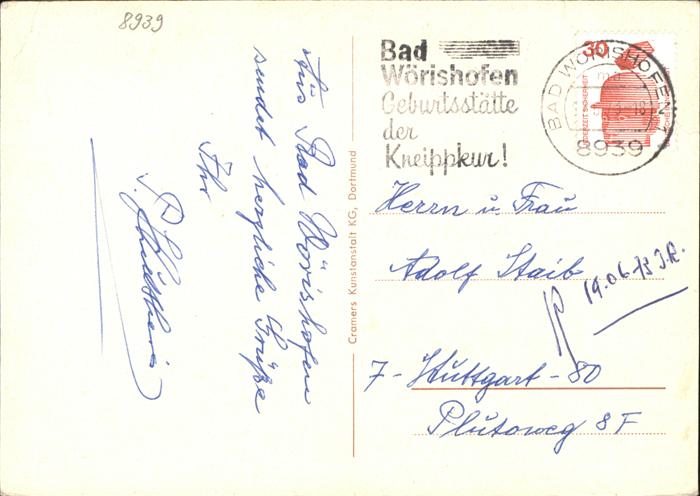 8939
Aus Bad Wörishofen
sendet herzliche Grüße
Ihr
Cramers Kunstanstalt KG, Dortmund
Bad
Wörishofen
Geburtsstätte
der
Kneippkur!
30
JEDERZEIT SICHERHEIT
BAD WÖRISHOFEN
8939
Herrn u. Frau
Adolf Staib
19.06.73 J.R.
7-Stuttgart-80
Plutoweg 8F